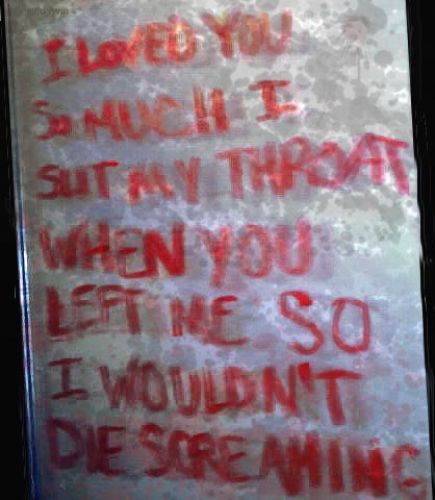 I LOVED YOU
SO MUCH I
SLIT MY THROAT
WHEN YOU
LEFT ME SO
I WOULDN'T
DIE SCREAMING